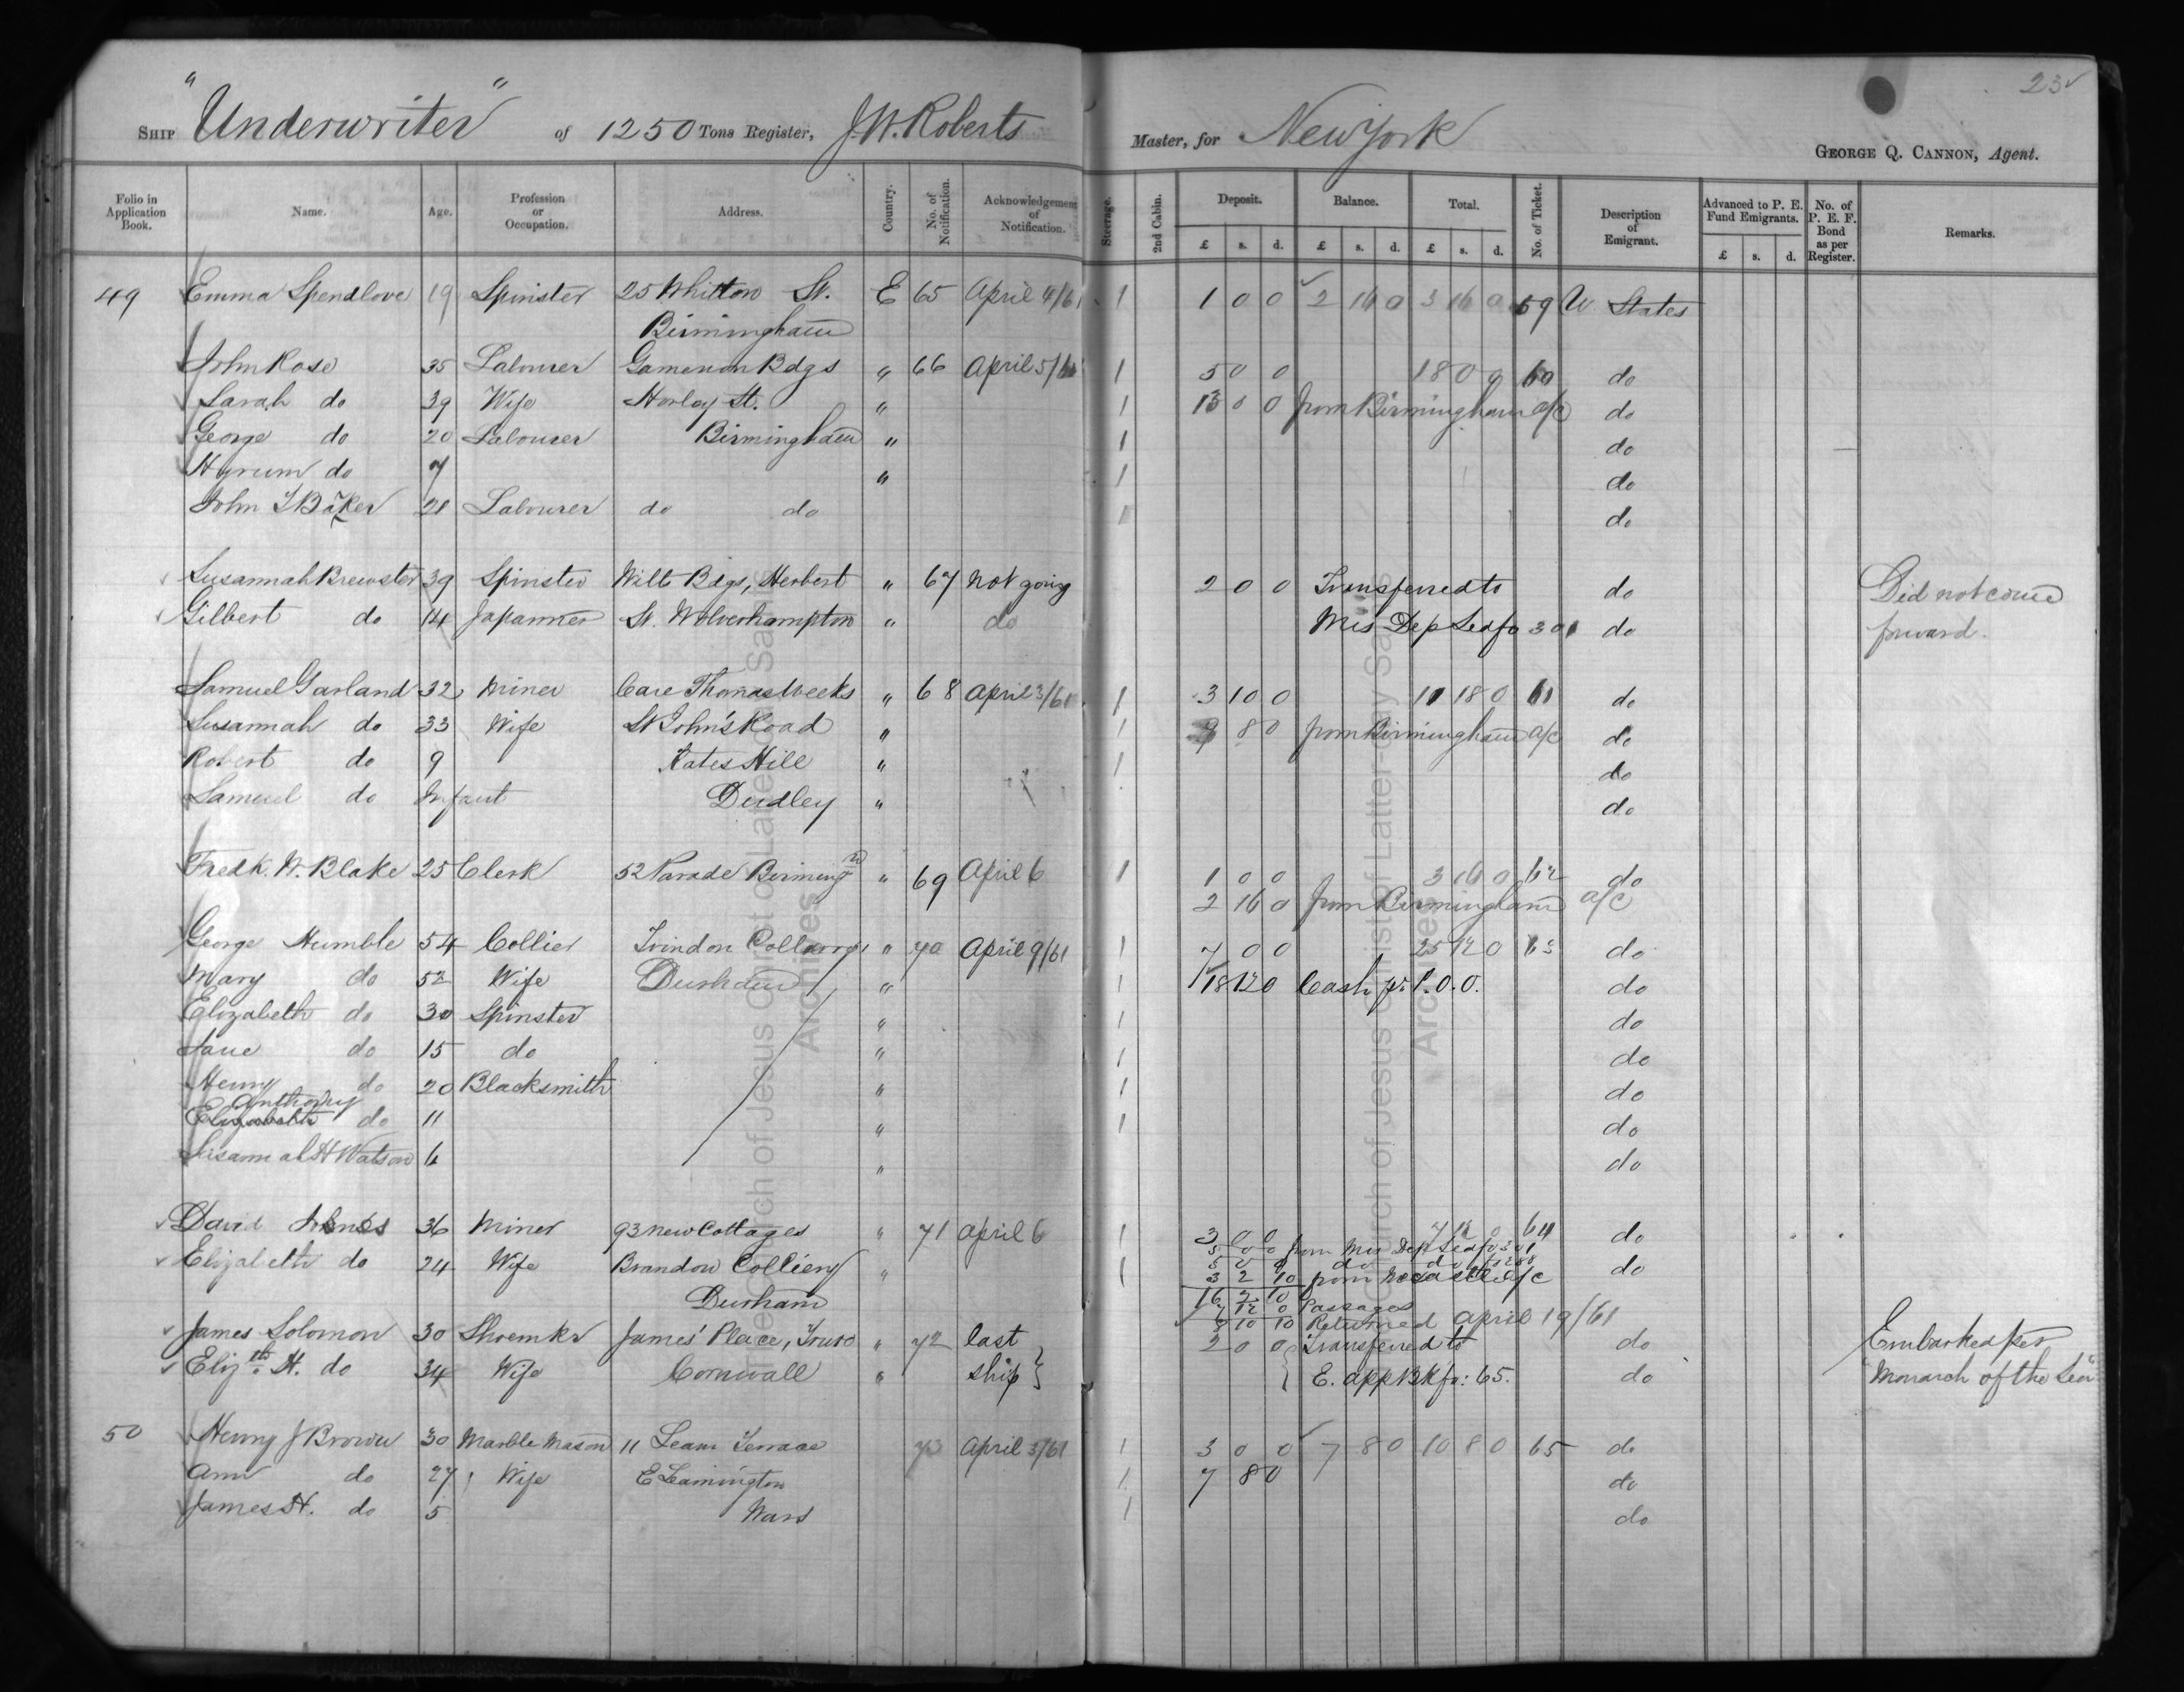 23
SHIP "Underwriter" of 1250 Tons Register, J.W. Roberts Master, for New York
GEORGE Q. CANNON, Agent.
Folio in Application Book. Name. Age. Profession or Occupation. Address. Country. No. of Notification. Acknowledgement of Notification. Steerage. 2nd Cabin. Deposit. Balance. Total. No. of Ticket. Description of Emigrant. Advanced to P. E. Fund Emigrants. No. of P. E. F. Bond as per Register. Remarks.
£ s. d. £ s. d. £ s. d. £ s. d.
49 Emma Spendlove 19 Spinster 25 Whitton St. E 65 April 4/61 1 1 0 0 2 16 0 3 16 0 59 U States
Birmingham
John Rose 35 Labourer Bdgs " 66 April 5/61 1 5 0 0 18 0 0 60 do
Sarah do 39 Wife Horley St. " 1 13 0 0 from Birmingham a/c do
George do 20 Labourer Birmingham " 1 do
Hyrum do 7 " 1 do
John T Baker 21 Labourer do do 1 do
Susannah Brewster 39 Spinster Wilts Bdgs, Herbert " 67 not going 2 0 0 Transferred to do Did not come
Gilbert do 14 Japanner St. Wolverhampton " do Mis Dep Led fo 301 do forward.
Samuel Garland 32 Miner Care Thomas Weeks " 68 April 3/61 1 3 10 0 11 18 0 61 do
Susannah do 33 Wife St John's Road " 1 8 8 0 from Birmingham a/c do
Robert do 9 Kates Hill " 1 do
Samuel do Infant Dudley " do
Fredk. W. Blake 25 Clerk 52 Parade Birmingm " 69 April 6 1 1 0 0 3 16 0 62 do
2 16 0 from Birmingham a/c
George Humble 54 Collier Trindon Colliery " 70 April 9/61 1 7 0 0 25 12 0 63 do
Mary do 52 Wife Durham " 1 18 12 0 Cash pr. P.O.O. do
Elizabeth do 30 Spinster " 1 do
Jane do 15 do " 1 do
Henry do 20 Blacksmith " 1 do
Anthony
Elizabeth do 11 " 1 do
Susannah H Watson 6 " do
David Jones 36 Miner 93 New Cottages " 71 April 6 1 3 0 0 7 12 0 64 do
5 0 0 from Mis Dep Led fo 301
Elizabeth do 24 Wife Brandon Colliery " 1 5 0 0 do do do
3 2 10 from Necastle a/c
Durham 16 2 10
7 12 0 Passages
8 10 10 Returned April 19/61
James Solomon 30 Shoemkr James' Place, Truro " 72 last 2 0 0 Transferred to do Embarked per
Elizth. H. do 34 Wife Cornwall " ship } { E. App Bk fo: 65. do "Monarch of the Sea"
50 Henry J Brown 30 Marble Mason 11 Leam Terrace 73 April 3/61 1 3 0 0 7 8 0 10 8 0 65 do
Ann do 27 Wife E Leamington 1 7 8 0 do
James H. do 5 Wars 1 do
The Church of Jesus Christ of Latter-day Saints
Archives
The Church of Jesus Christ of Latter-day Saints
Archives